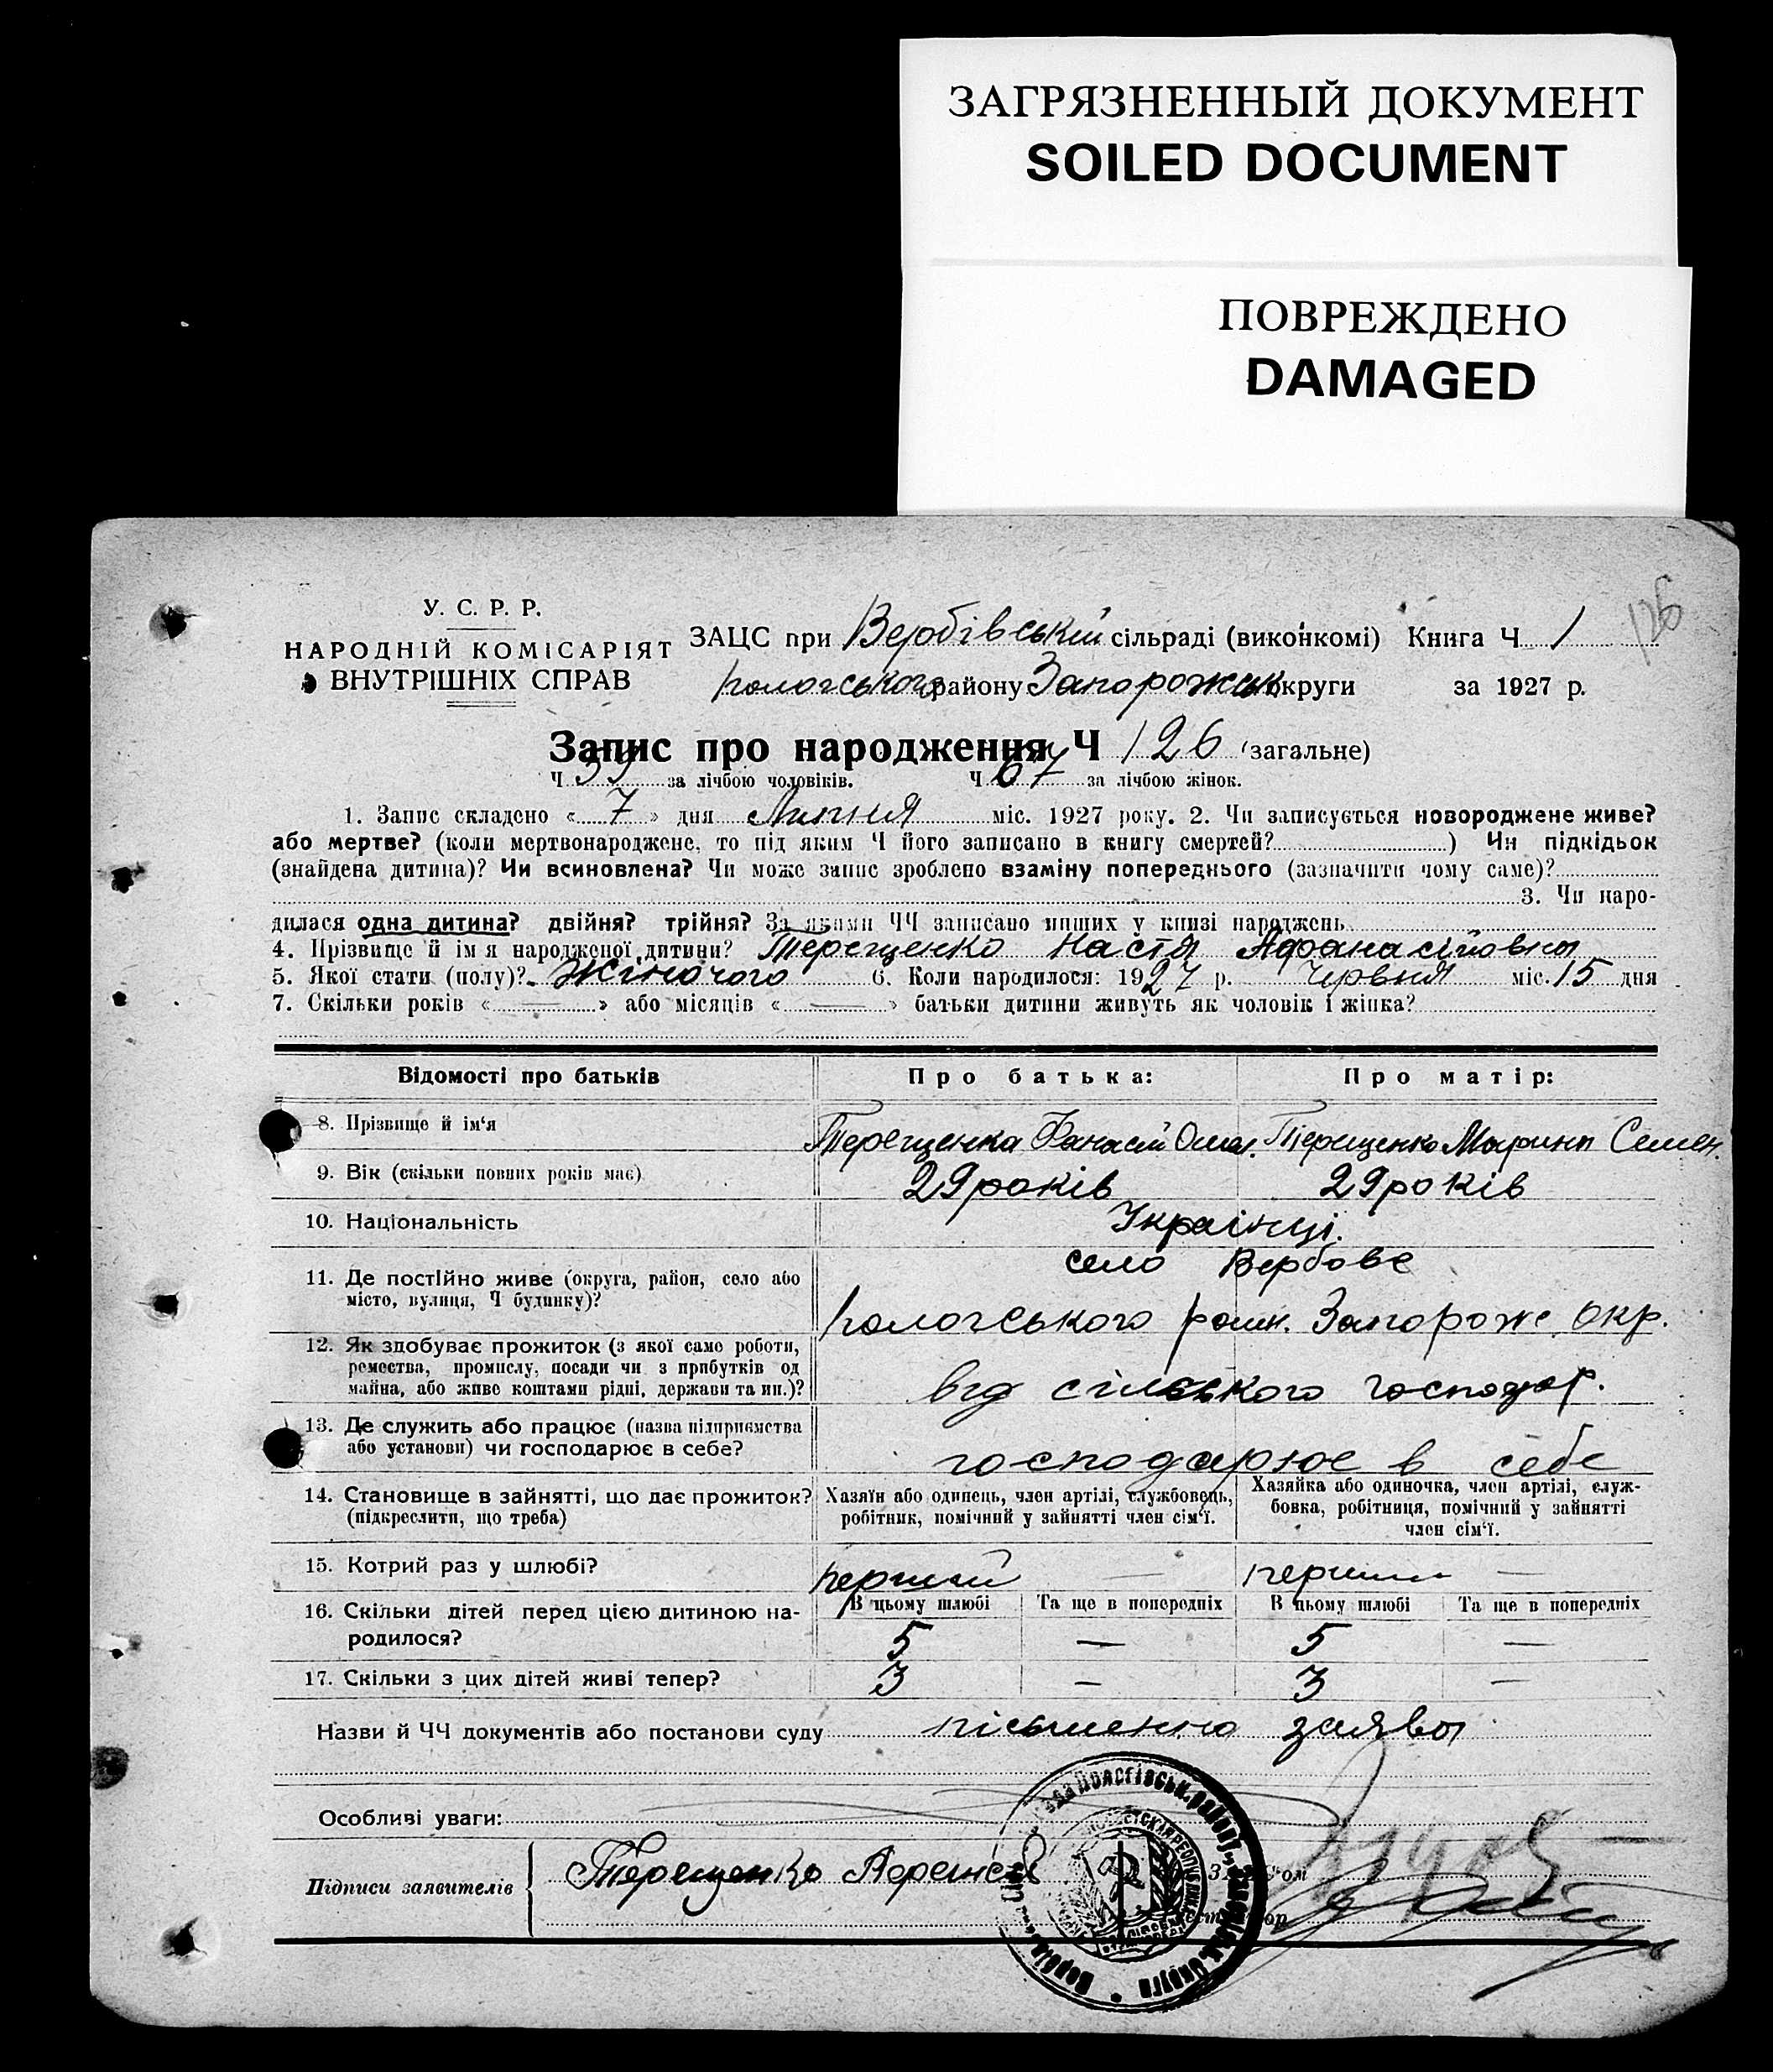 ЗАГРЯЗНЕННЫЙ ДОКУМЕНТ
SOILED DOCUMENT
ПОВРЕЖДЕНО
DAMAGED
126
У. С. Р. Р.
НАРОДНІЙ КОМІСАРІЯТ
ВНУТРІШНІХ СПРАВ
ЗАЦС при Вербівській сільраді (виконкомі) Книга Ч 1
Пологського району Запорожськ округи за 1927 р.
Запис про народження Ч 126 (загальне)
Ч 59 за лічбою чоловіків. Ч 67 за лічбою жінок.
1. Запис складено « 7 » дня Липня міс. 1927 року. 2. Чи записується новороджене живе?
або мертве? (коли мертвонароджене, то під яким Ч його записано в книгу смертей? ) Чи підкідьок
(знайдена дитина)? Чи всиновлена? Чи може запис зроблено взаміну попереднього (зазначити чому саме)?
3. Чи наро-
дилася одна дитина? двійня? трійня? За якими ЧЧ записано инших у книзі народжень
4. Прізвище й ім я народженої дитини? Терещенко Настя Афанасійовна
5. Якої стати (полу)? Жіночого 6. Коли народилося: 1927 р. Червня міс. 15 дня
7. Скільки років « — » або місяців « — » батьки дитини живуть як чоловік і жінка?
Відомості про батьків Про батька: Про матір:
8. Прізвище й ім'я Терещенка Фанасій Омел. Терещенко Марина Семен.
9. Вік (скільки повних років має) 29 років 29 років
10. Національність Українці.
село Вербове
11. Де постійно живе (округа, район, село або
місто, вулиця, Ч будинку)? Пологського район. Запорожс. окр.
12. Як здобуває прожиток (з якої саме роботи,
ремества, промислу, посади чи з прибутків од
майна, або живе коштами рідні, держави та ин.)? від сільського господар.
13. Де служить або працює (назва підприємства
або установи) чи господарює в себе? господарює в себе
14. Становище в зайнятті, що дає прожиток?
(підкреслити, що треба)
Хазяїн або одинець, член артілі, службовець,
робітник, помічний у зайнятті член сім'ї.
Хазяйка або одиночка, член артілі, служ-
бовка, робітниця, помічний у зайнятті
член сім'ї.
15. Котрий раз у шлюбі? перший — перший —
В цьому шлюбі Та ще в попередніх В цьому шлюбі Та ще в попередніх
16. Скільки дітей перед цією дитиною на-
родилося? 5 — 5 —
17. Скільки з цих дітей живі тепер? 3 — 3 —
Назви й ЧЧ документів або постанови суду письменно заява
Особливі уваги:
Підписи заявителів Терещенко